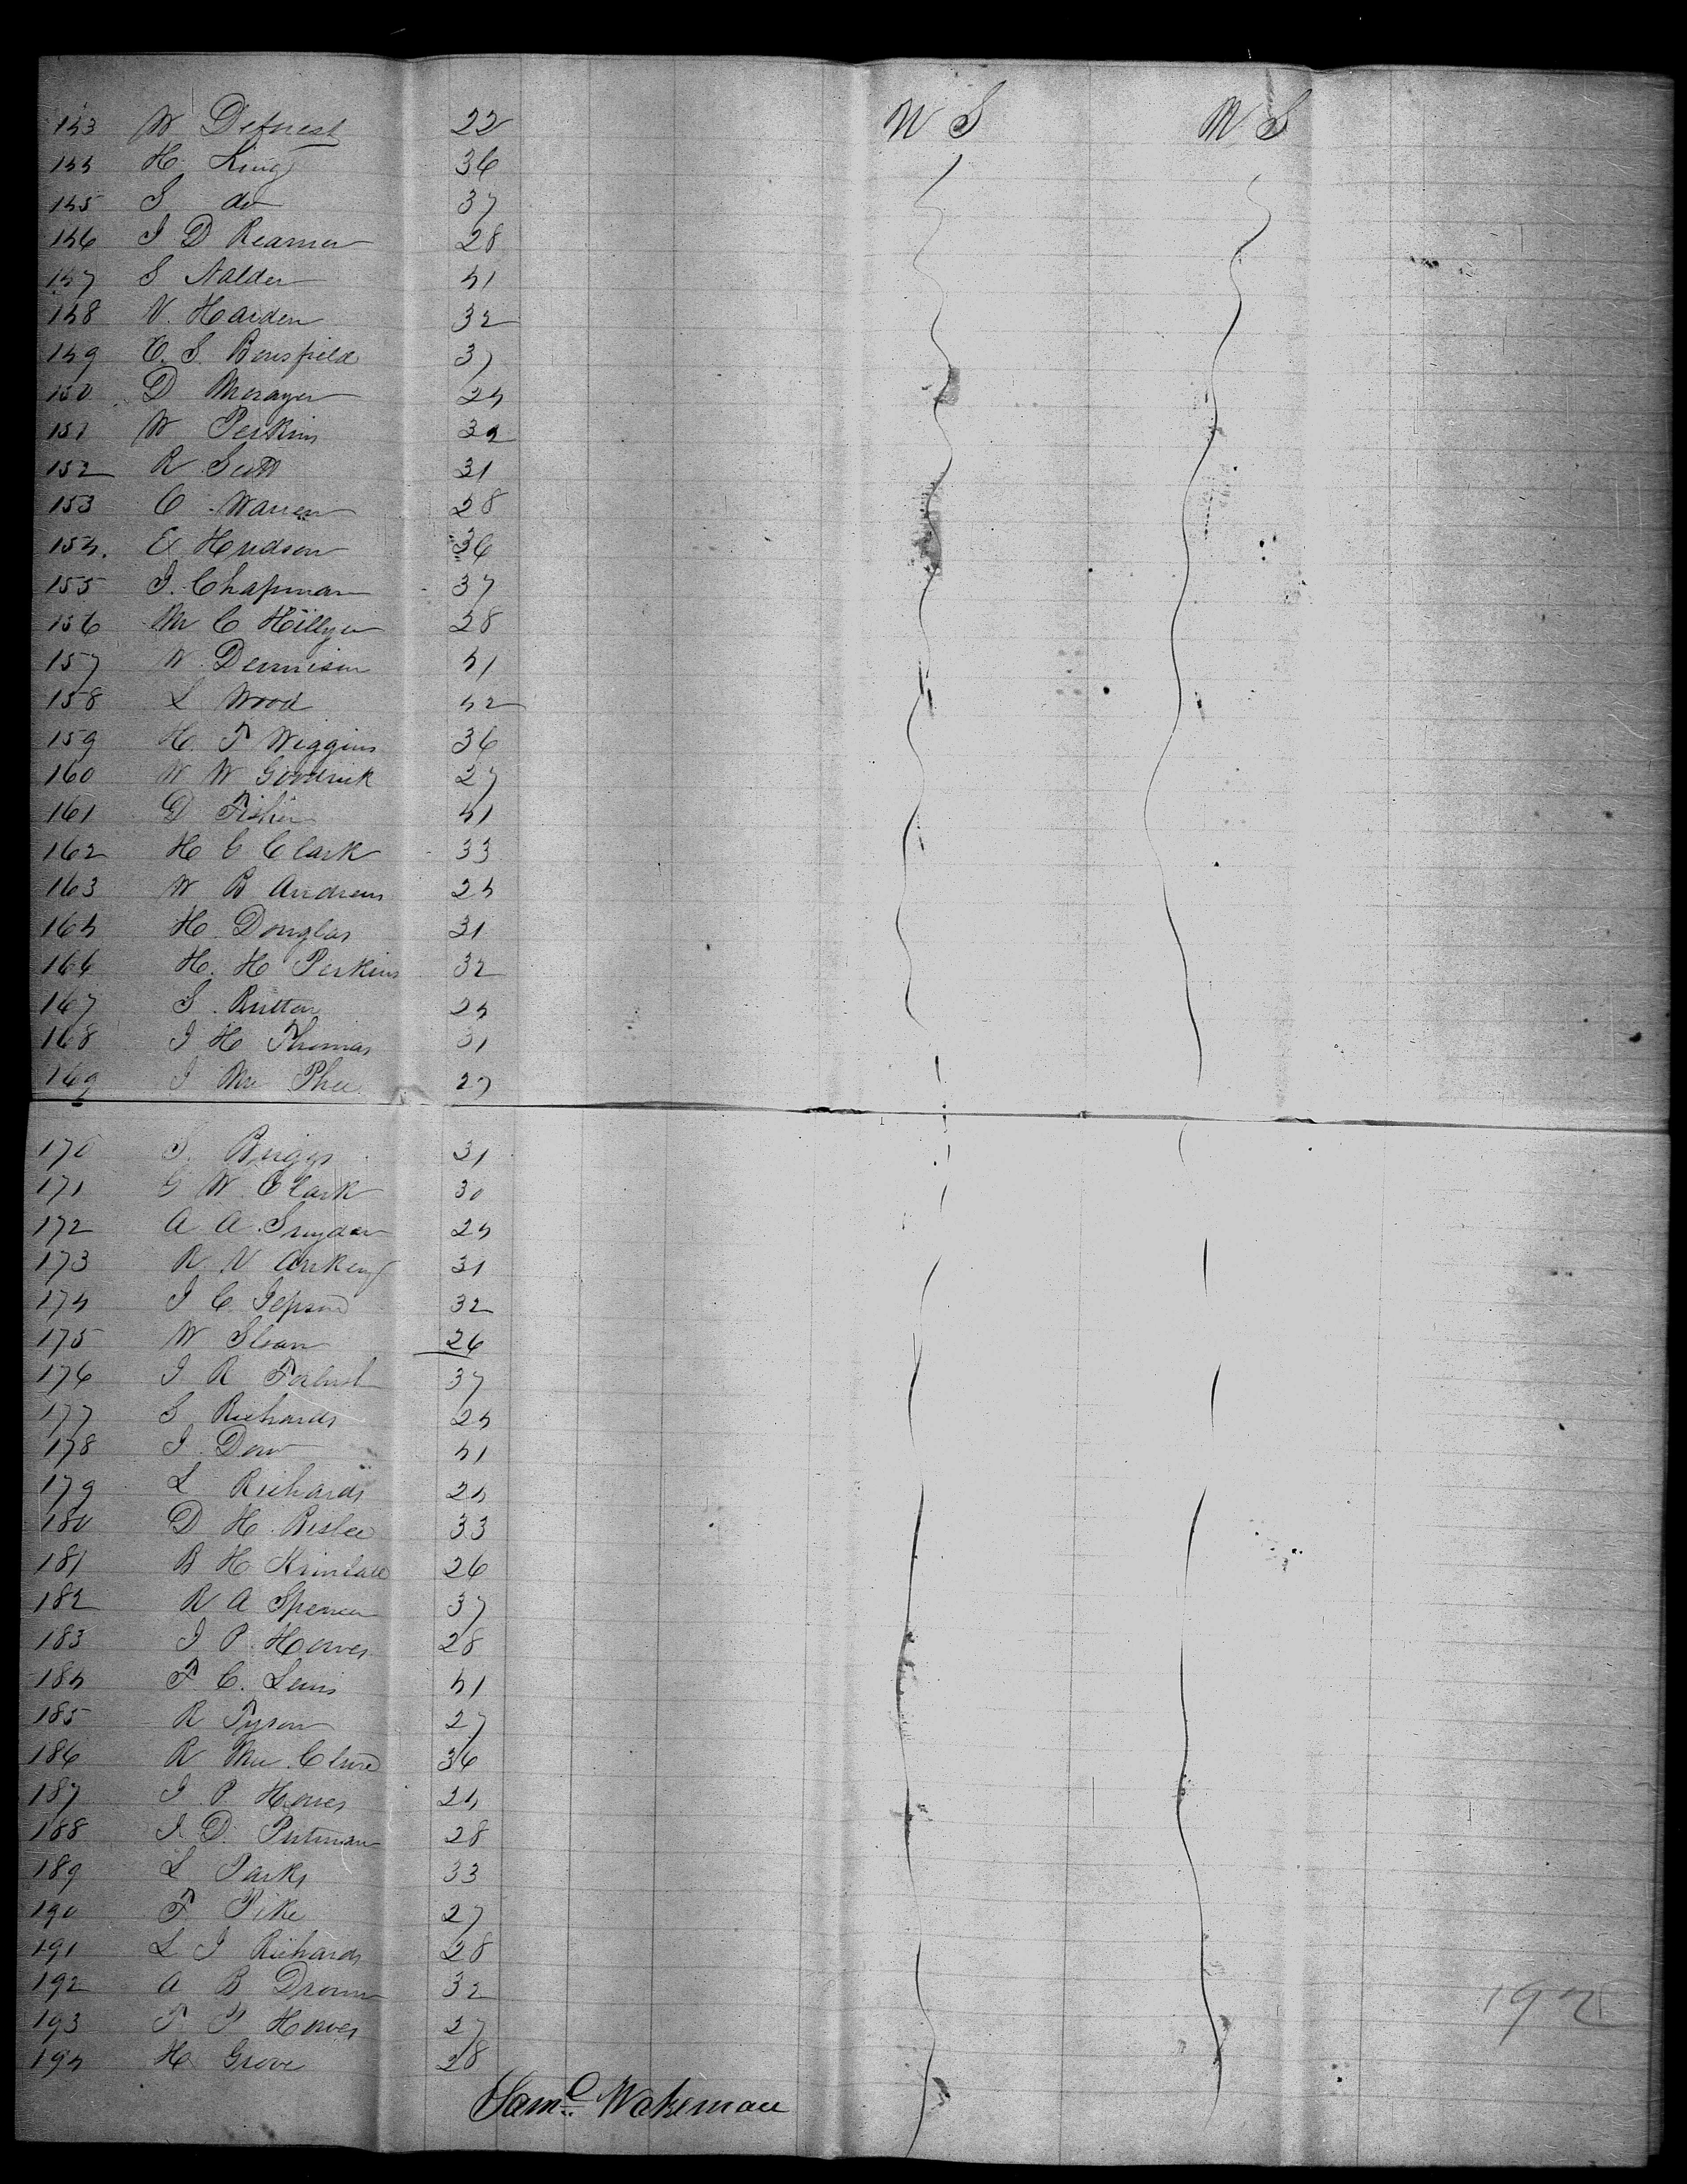 143 W Deforest 22 U S U S
144 H. King 36
145 S do 37
146 J D Reamer 28
147 S Nalder 41
148 N. Harden 32
149 E. S. Bousfield 37
150 D 24
151 W Perkins 32
152 R Scott 31
153 C Warren 28
154. E Hudson 36
155 J. Chapman 37
156 M C Hillyer 28
157 W. Dennison 41
158 L Wood 42
159 H. T Wiggins 36
160 W W Goodrick 27
161 D Fisher 41
162 H C Clark 33
163 W B Andrews 24
164 H. Douglas 31
166 H. H Perkins 32
167 S. Rutter 24
168 J H Thomas 31
169 J Mc Phee 27
170 S. Briggs 31
171 G W. Clark 30
172 A A. Snyder 24
173 R N Ankeny 31
174 J C Jepson 32
175 W Sloan 26
176 J R Forbush 37
177 S Richards 24
178 J. Dow 41
179 L Richards 24
180 D H. Bisbee 33
181 B H Kimball 26
182 R A Spencer 37
183 J P. Howes 28
184 F C. Lewis 41
185 R Tyson 27
186 R Mc Clure 36
187 J P. Howes 24
188 J. D. Putman 28
189 L Parks 33
190 F. Pike 27
191 L J Richards 28
192 A B Drown 32
193 T F Howes 27
194 H Grove 28
Saml. Wakeman